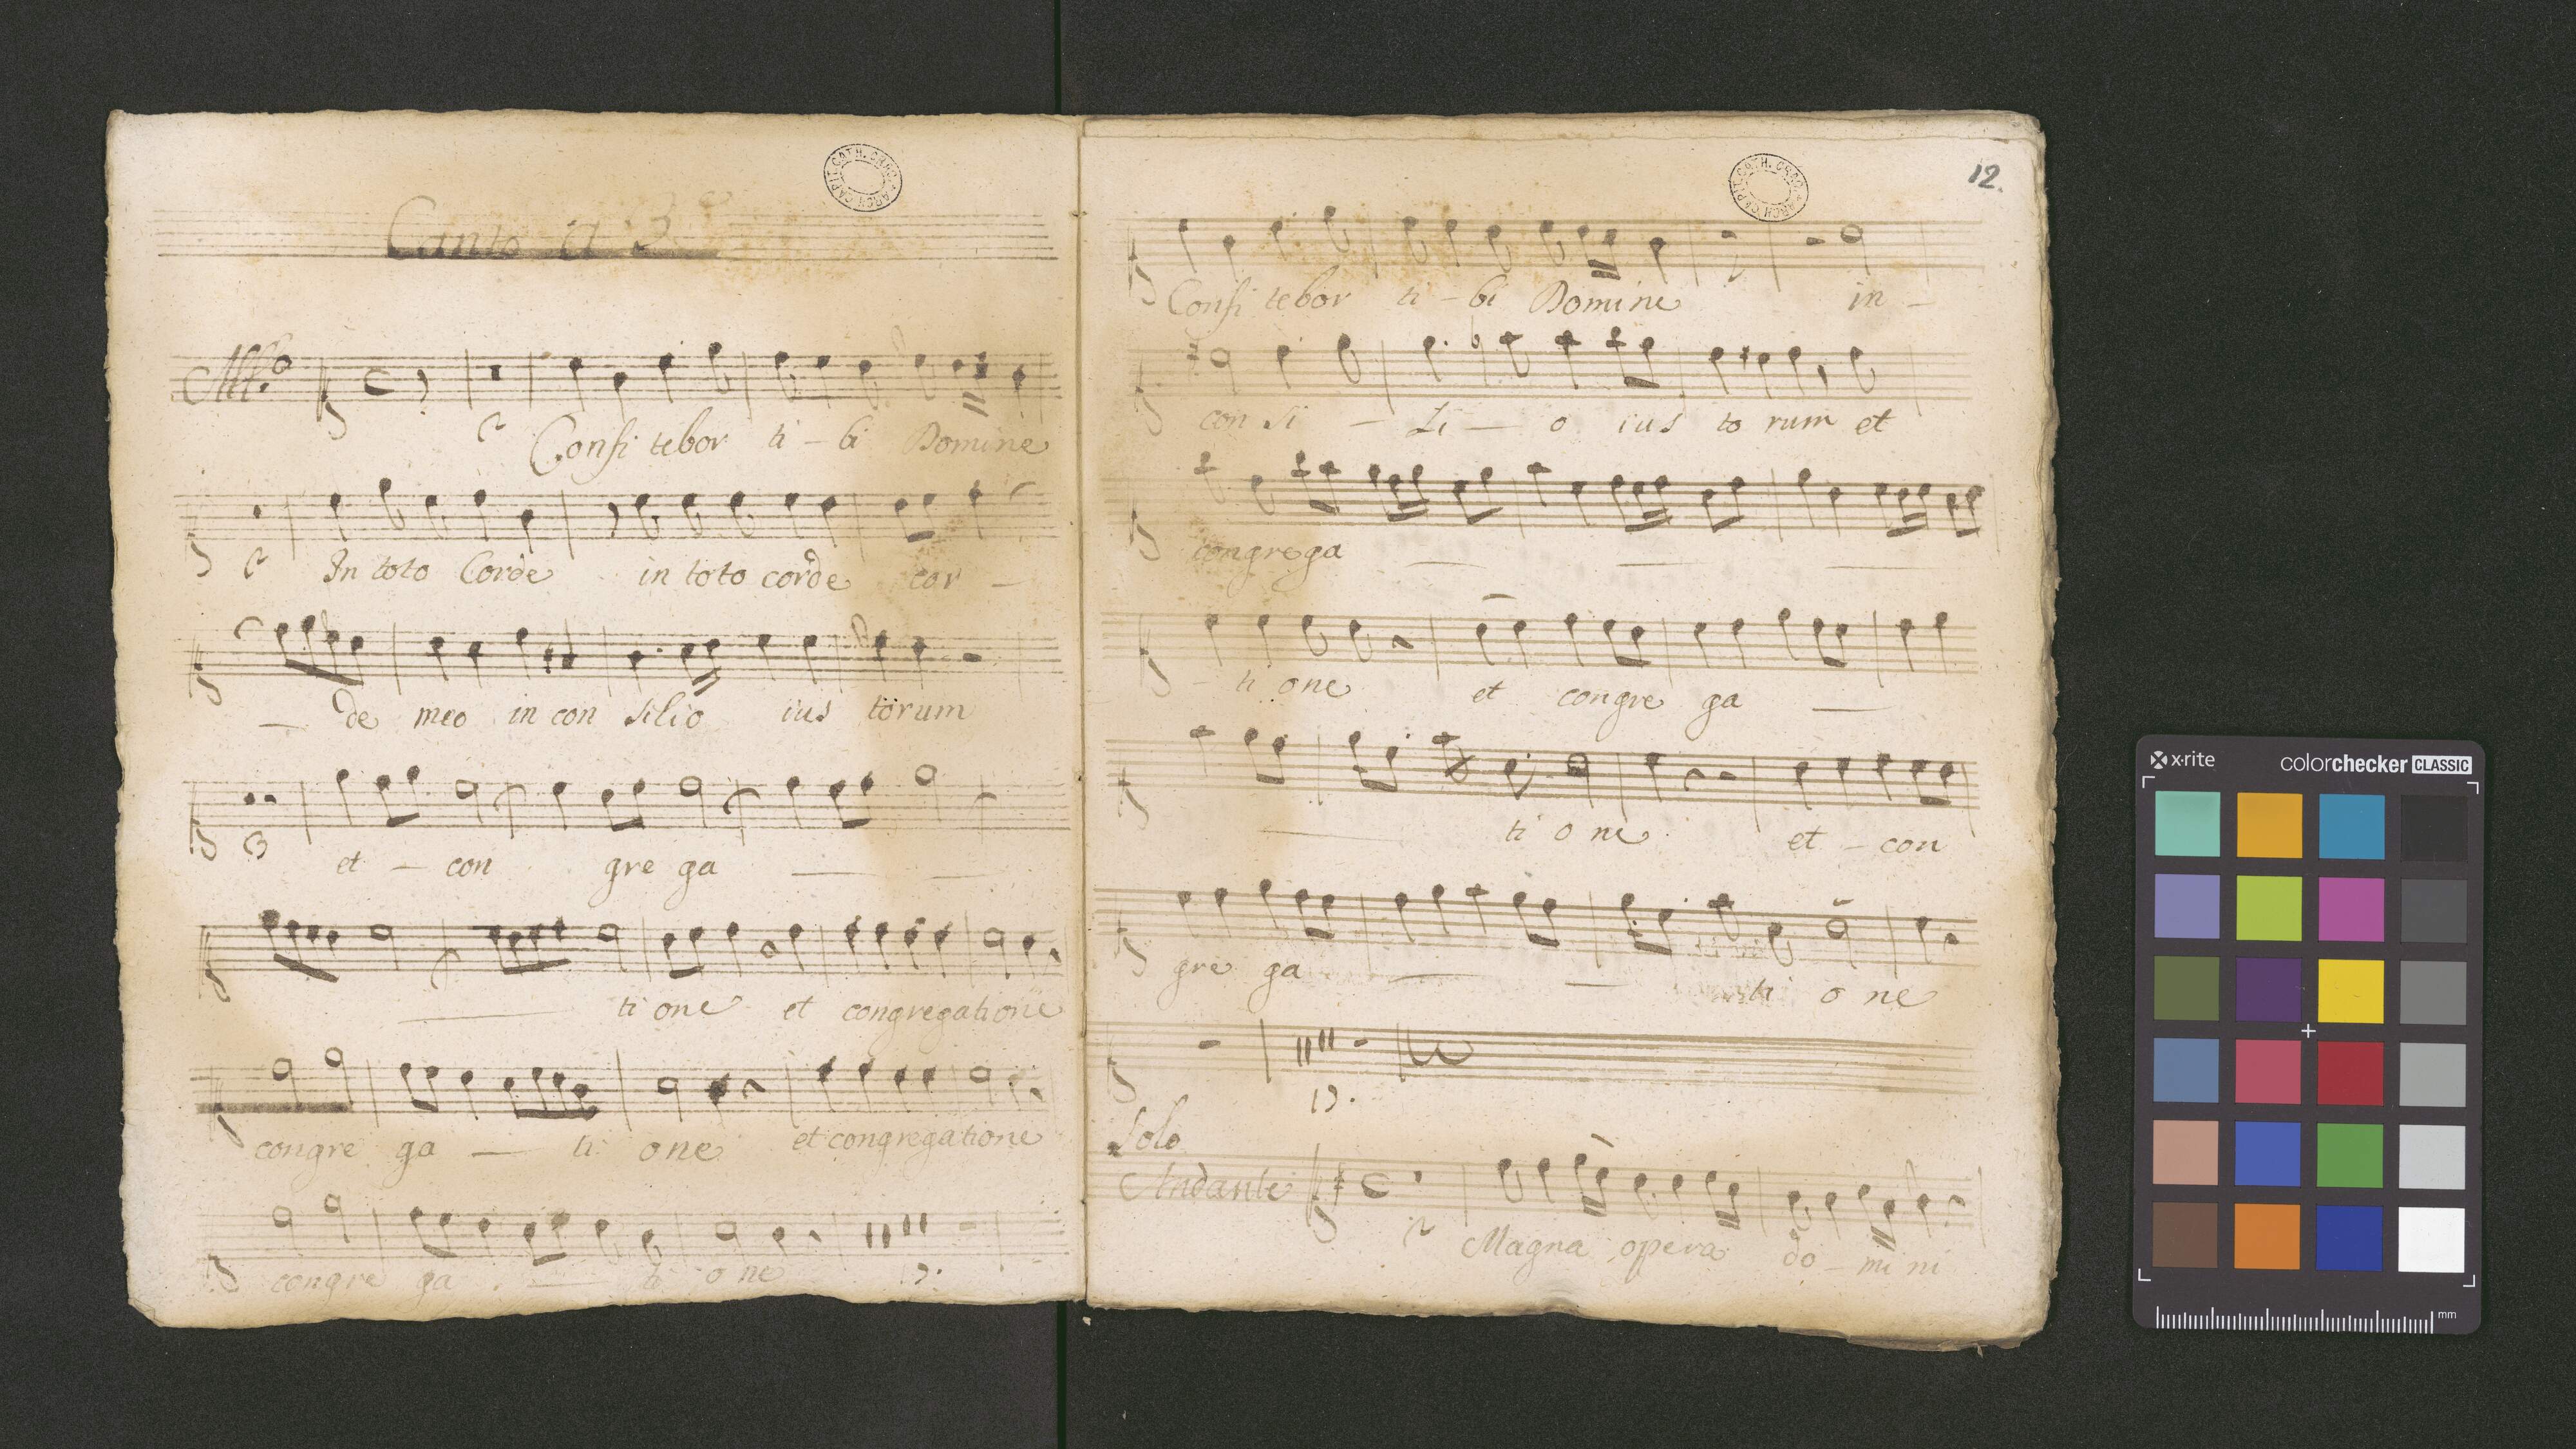 Canto a 3
CAPIT. CATH. CRAC. ARCH
All.o
2 Confi tebor ti - bi Domine
2 In toto Corde in toto corde cor -
- de meo in con silio ius torum
3 et - con gre ga - -
- ti one et congregatione
congre ga - ti one et congregatione
congre ga - ti o ne 15.
12.
CAPIT. CATH. CRAC. ARCH
Confi tebor ti - bi Domine in -
con si - li - o ius to rum et
congrega - - -
- ti one et congre ga -
- ti o ne et - con
gre ga - - ti o ne
15.
Solo
Andante
2 Magna opera do - mi ni
x-rite colorchecker CLASSIC
mm